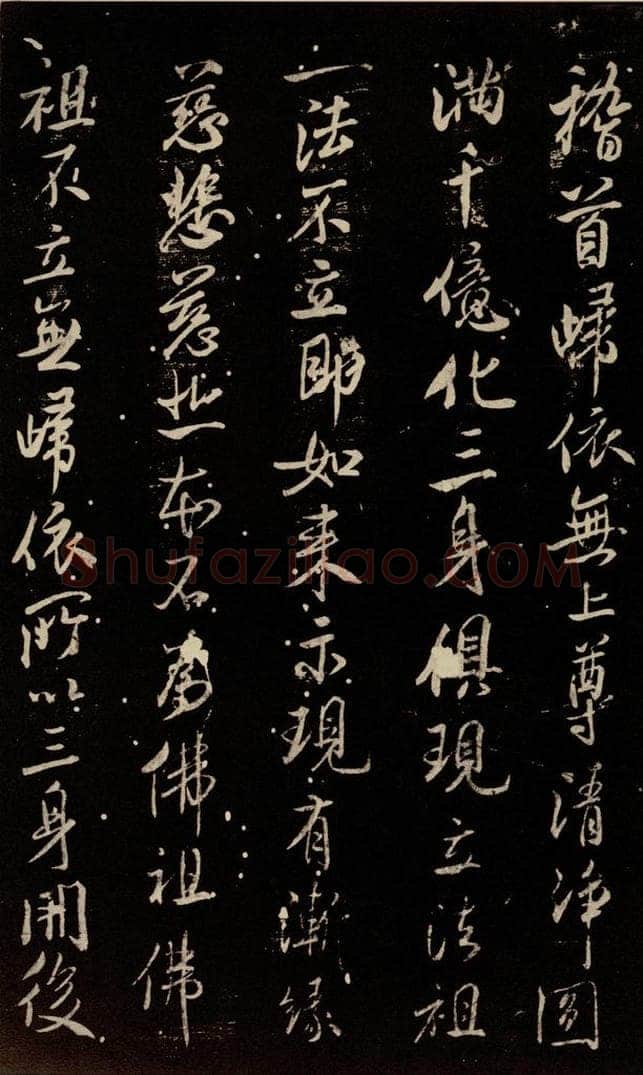 稽首歸依無上尊清淨圓
滿千億化三身俱現立法祖
一法不立即如来示現有漸緣
慈悲慈悲本名為佛祖佛
祖不立無歸依所以三身開後
Shufaziliao.COM